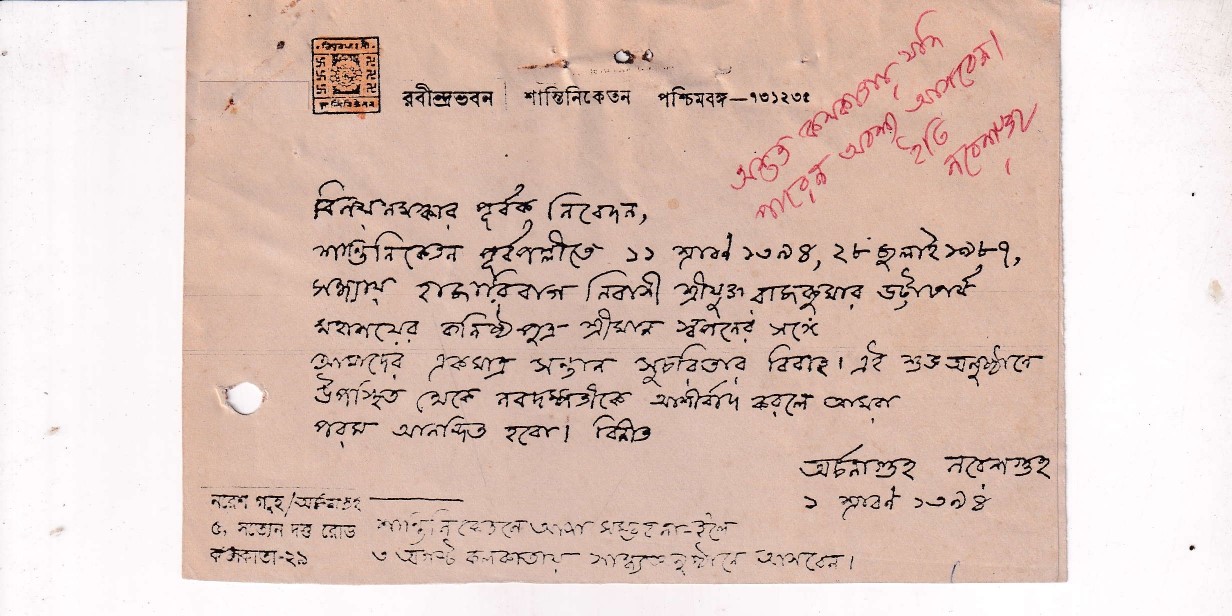 রবীন্দ্রভবন শান্তিনিকেতন পশ্চিমবঙ্গ—৭৩১২৩৫
অন্তত কলকাতায় যদি
পারেন অবশ্য আসবেন।
ইতি
নরেশ গুহ
বিনয়নমস্কার পূর্বক নিবেদন,
শান্তিনিকেতন পূর্বপল্লীতে ১১ শ্রাবণ ১৩৯৪, ২৮ জুলাই ১৯৮৭,
সন্ধ্যায় হাজারিবাগ নিবাসী শ্রীযুক্ত রাজকুমার ভট্টাচার্য
মহাশয়ের কনিষ্ঠ পুত্র শ্রীমান স্বপনের সঙ্গে
আমাদের একমাত্র সন্তান সুচরিতার বিবাহ। এই শুভ অনুষ্ঠানে
উপস্থিত থেকে নবদম্পতীকে আশীর্বাদ করলে আমরা
পরম আনন্দিত হবো। বিনীত
অর্চনা গুহ নরেশ গুহ
১ শ্রাবণ ১৩৯৪
নরেশ গুহ/অর্চনা গুহ
৫, সত্যেন দত্ত রোড
কলিকাতা-২৯
শান্তিনিকেতনে আসা সম্ভব না-হলে
৩ অগস্ট কলকাতায় সান্ধ্য অনুষ্ঠানে আসবেন।